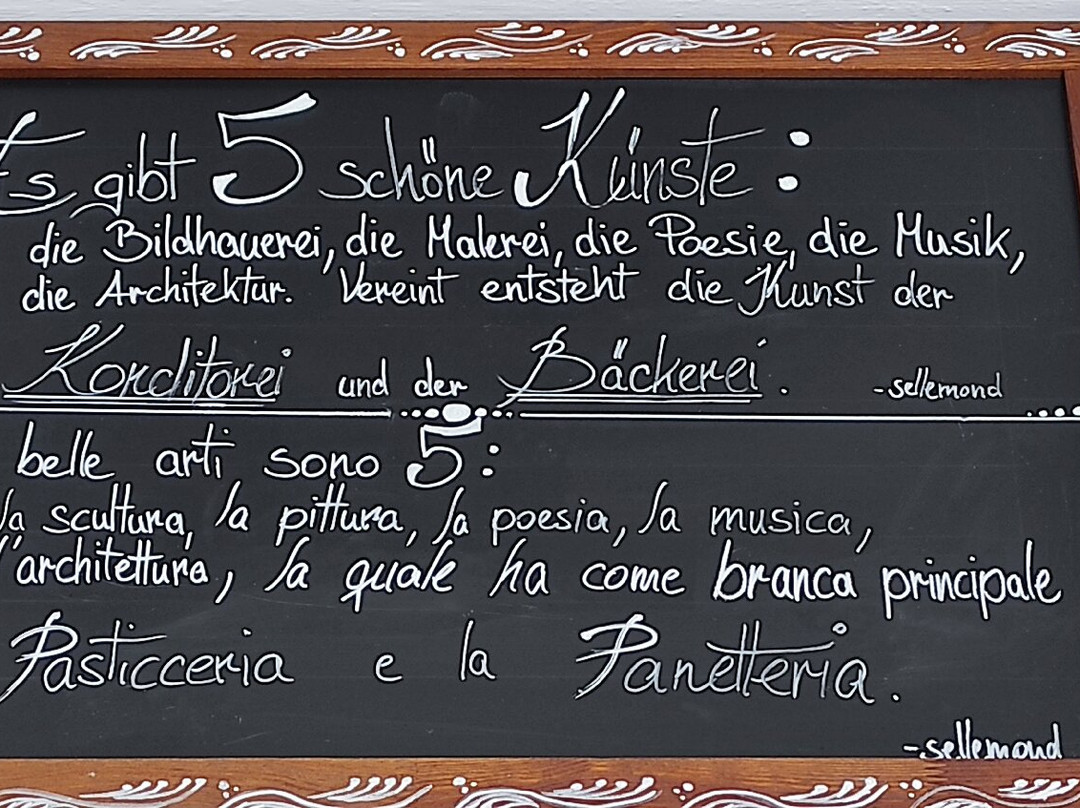 Es gibt 5 schöne Künste:
die Bildhauerei, die Malerei, die Poesie, die Musik,
die Architektur. Vereint entsteht die Kunst der
Konditorei und der Bäckerei. -sellemond
belle arti sono 5:
la scultura, la pittura, la poesia, la musica,
l'architettura, la quale ha come branca principale
Pasticceria e la Panetteria.
-sellemond